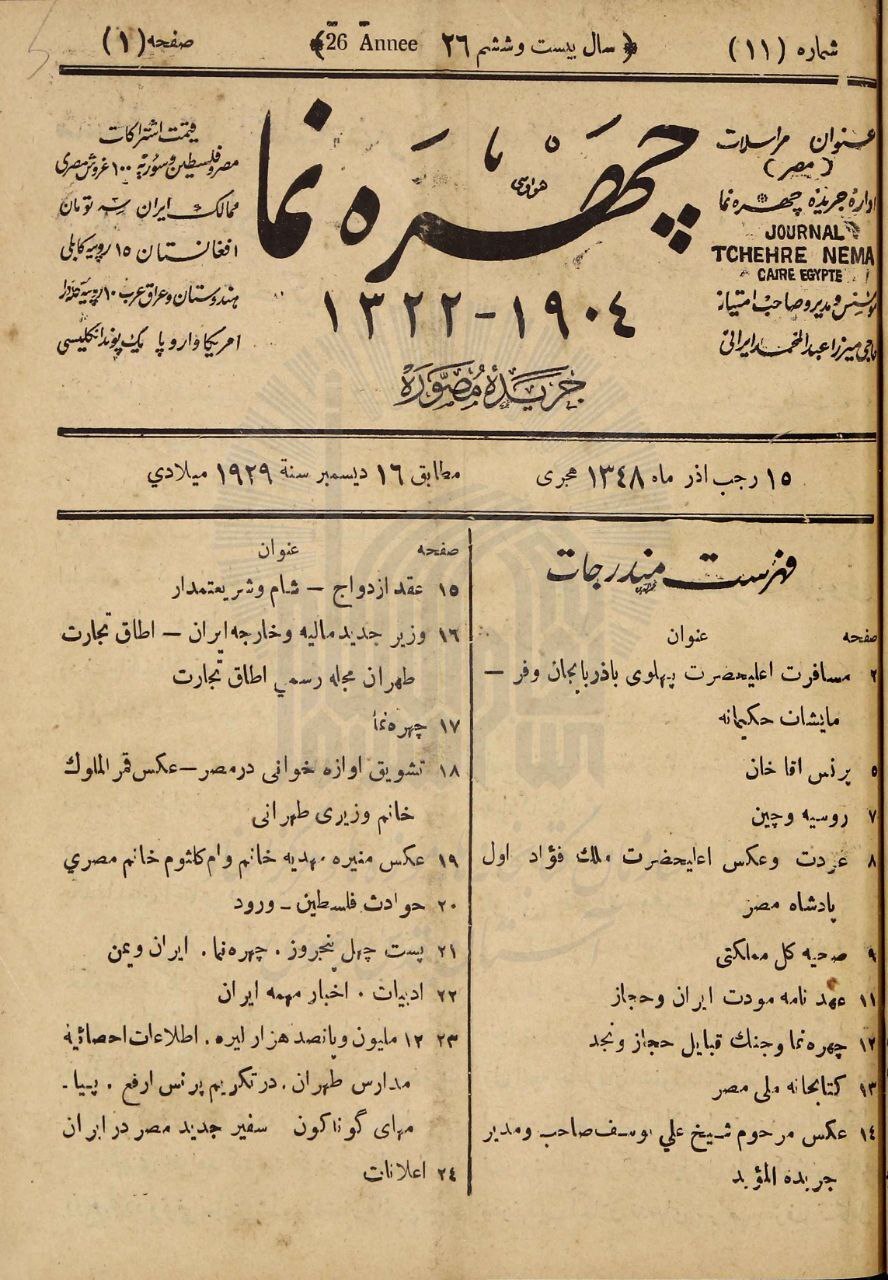 شماره (۱۱)
﴿ سال بیست وششم ۲۶ 26 Annee ﴾
صفحه (۱)
عنوان مراسلات
(مصر)
ادارهٔ جریدهٔ چهره نما
JOURNAL
TCHEHRE NEMA
CAIRE EGYPTE
مؤسس ومدیر وصاحب امتیاز
حاجی میرزا عبدالمحمد ایرانی
چهره نما
هواوسی
۱۹۰٤ - ۱۳۲۲
جریدهٔ مصوّره
قیمت اشتراکات
مصر وفلسطین وسوریه ۱۰۰ غروش مصری
ممالک ایران سه تومان
افغانستان ۱۵ روپیه کابلی
هندوستان وعراق عرب ۱۰ روپیه
امریکا واروپا یک پوند انکلیسی
۱۵ رجب اذر ماه ۱۳٤۸ هجری
مطابق ۱٦ دیسمبر سنة ۱۹۲۹ میلادي
فهرست مندرجات
صفحه عنوان
۲ مسافرت اعلیحضرت پهلوی باذربایجان وفر —
مایشات حکیمانه
۵ پرنس اقا خان
۷ روسیه وچین
۸ عودت وعکس اعلیحضرت ملك فؤاد اول
پادشاه مصر
۹ صحیه کل مملکتی
۱۱ عهد نامه مودت ایران وحجاز
۱۲ چهره نما وجنك قبایل حجاز ونجد
۱۳ کتابخانه ملی مصر
۱٤ عکس مرحوم شیخ علي یوسف صاحب ومدیر
جریده المؤید
صفحه عنوان
۱۵ عقد ازدواج — شام وشریعتمدار
۱٦ وزیر جدید مالیه وخارجه ایران — اطاق تجارت
طهران مجله رسمي اطاق تجارت
۱۷ چهره نما
۱۸ تشویق اوازه خوانی درمصر — عکس قمر الملوك
خانم وزیری طهرانی
۱۹ عکس منیره مهدیه خانم وام کلثوم خانم مصري
۲۰ حوادث فلسطین - ورود
۲۱ پست چهل پنجروز . چهره نما . ایران ویمن
۲۲ ادبیات . اخبار مهمه ایران
۲۳ ۱۲ ملیون وپانصد هزار لیره . اطلاعات احصائیه
مدارس طهران . در تکریم پرنس ارفع . پیا -
مهای گوناکون سفیر جدید مصر در ایران
۲٤ اعلانات